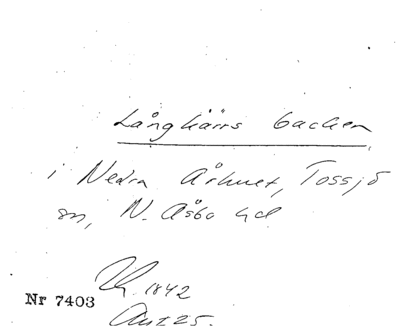 Långkärrs backen
i Nedra Århult, Tossjö
sn, N. Åsbo hd
1842
Nr 7403
Ant 25.